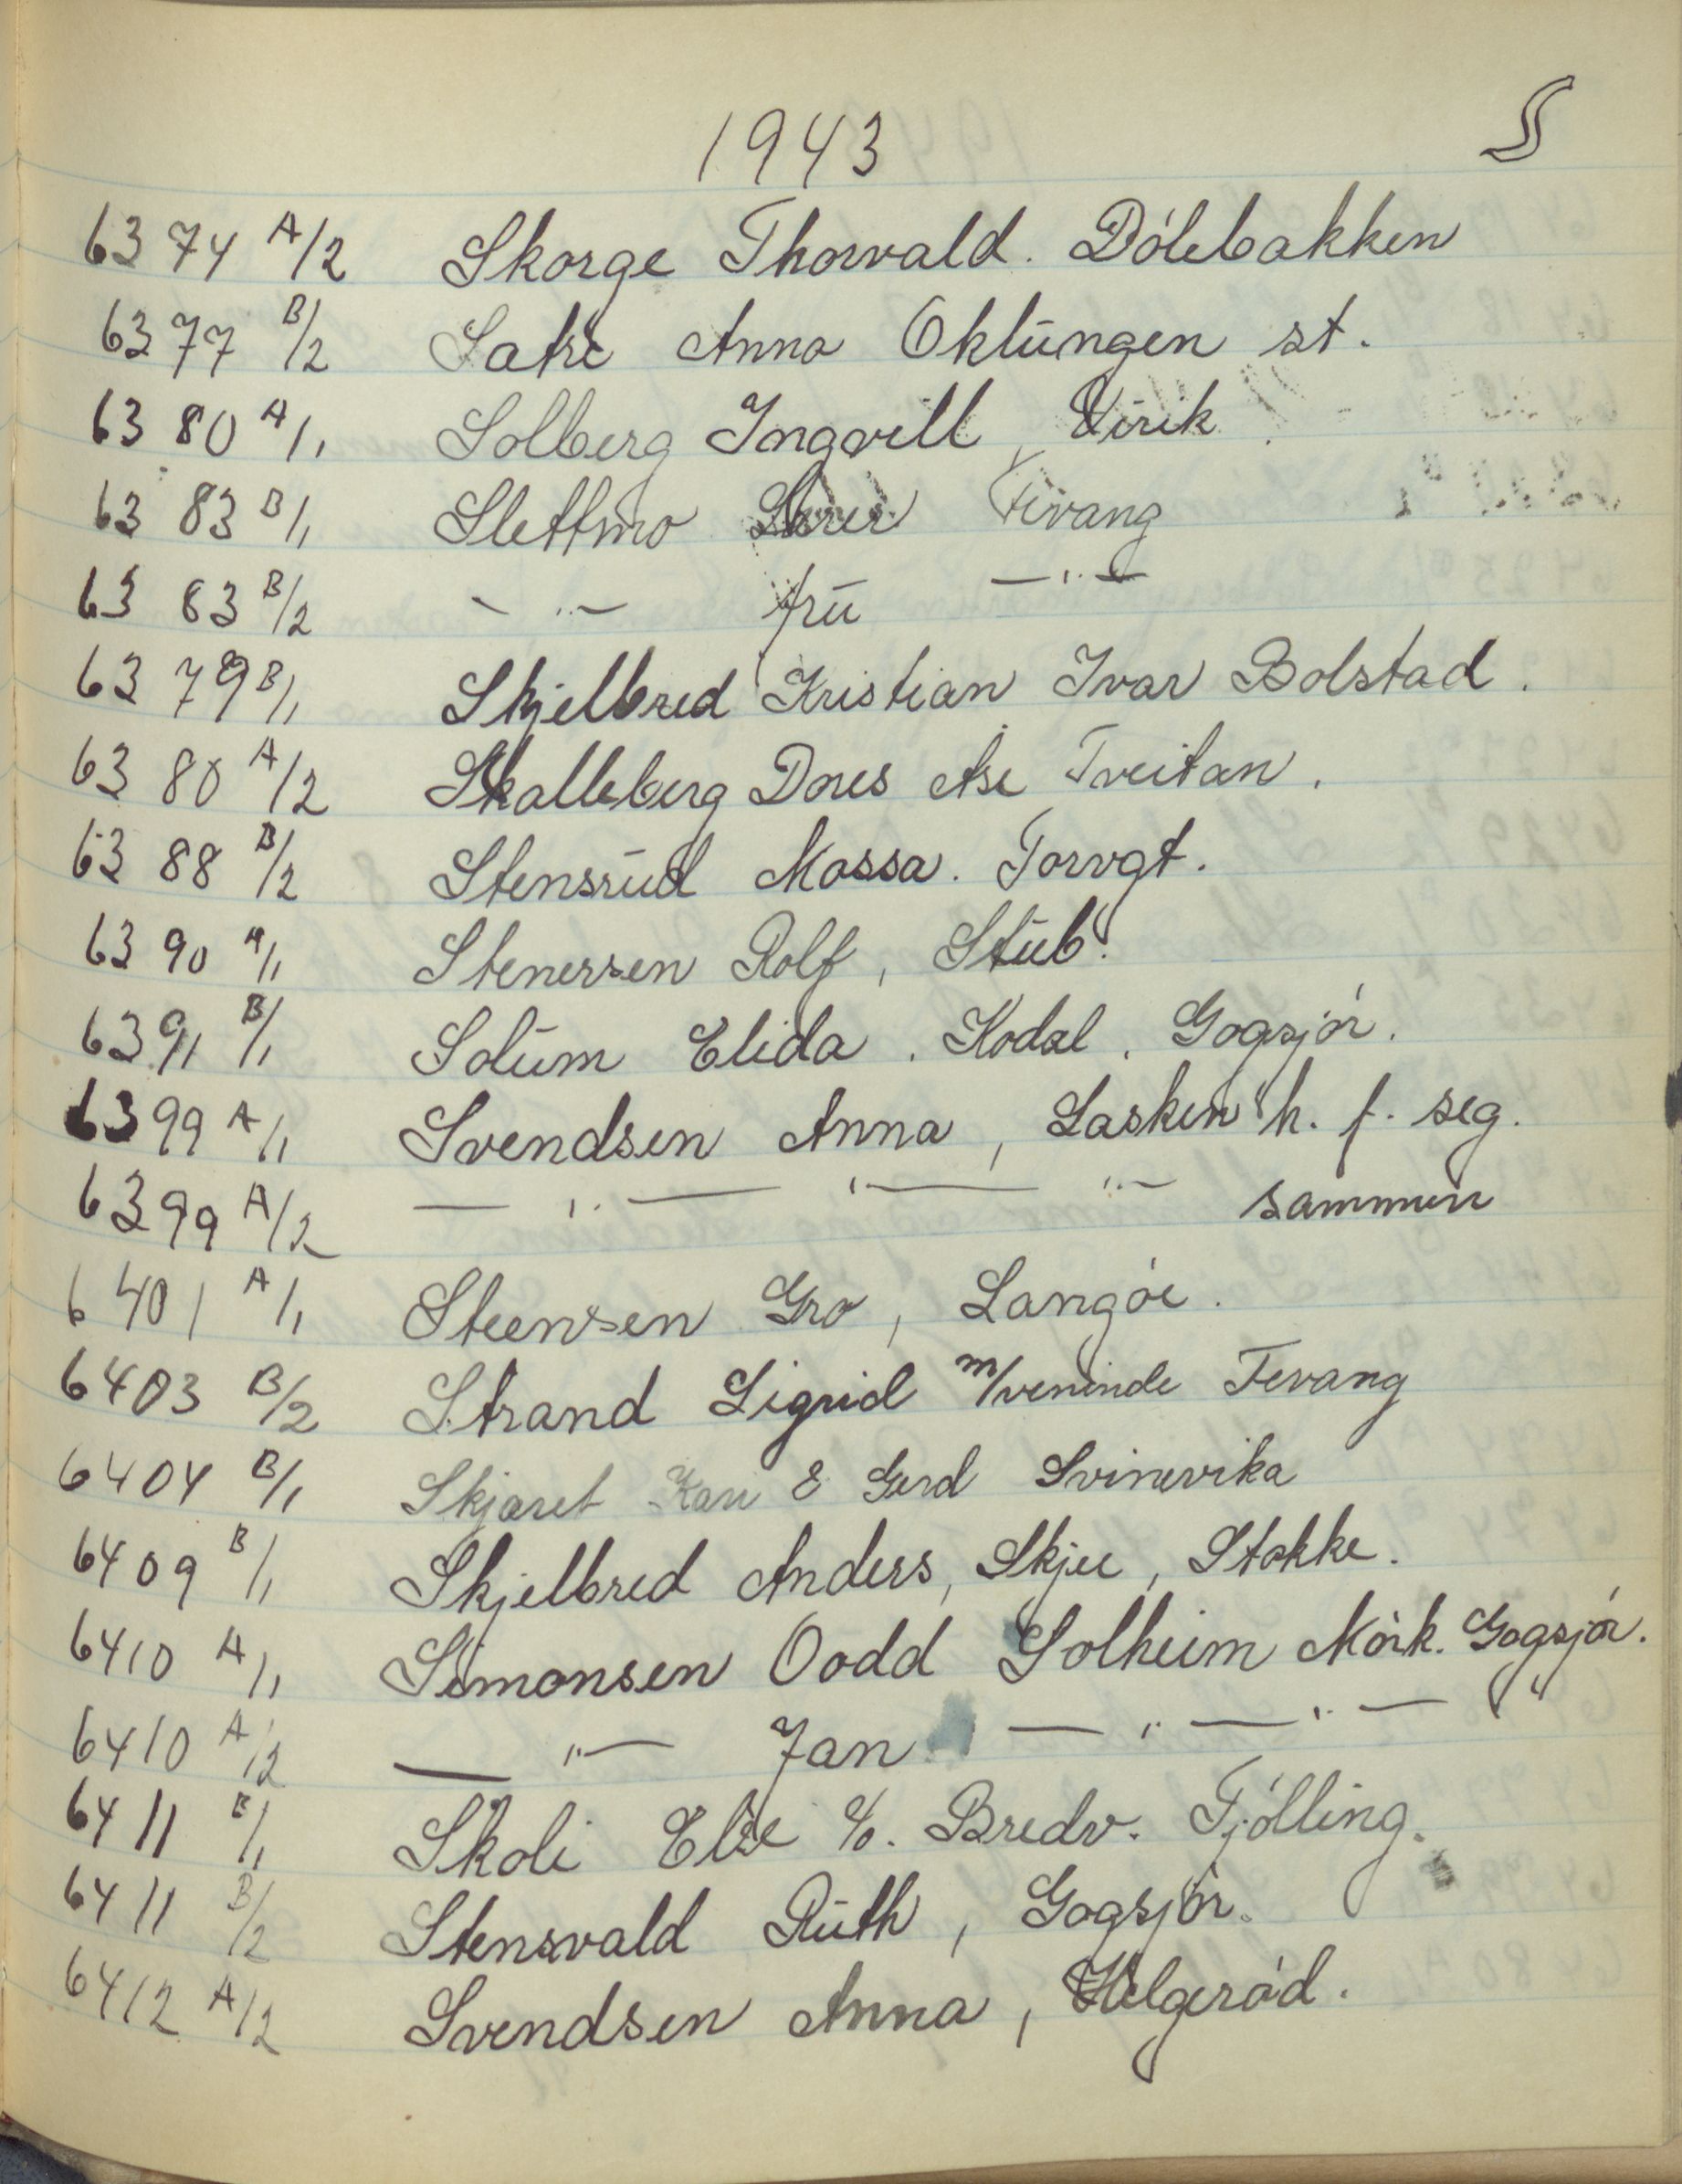 1943 S
6374 A/2 Skorge Thorvald. Dólebakken
6377 B/2 Satre Anna Oklungen st.
6380 A/1 Solberg Ingvill, Virik
6383 B/1 Slettmo Fevang
6383 B/2 — " — fru — " —
6379 B/1 Skjelbred Kristian Ivar Bolstad.
6380 A/2 Skalleberg Dores Åse Tveitan.
6388 B/2 Stensrud Massa. Torvgt.
6390 A/1 Stenersen Rolf, Stub.
6391 B/1 Solum Elida. Kodal. Gogsjór.
6399 A/1 Svendsen Anna, Lasken h. f. seg.
6399 A/2 — " — " — " — sammen
6401 A/1 Steensen Gro, Langóe.
6403 B/2 Strand Sigrid m/veninde Fevang
6404 B/1 Skjæret Kari & Gerd Svinevika
6409 B/1 Skjelbred Anders, Skjee, Stokke.
6410 A/1 Simonsen Oodd Solheim Mórk. Gogsjór.
6410 A/2 — " — Jan — " — " — "
6411 B/1 Skoli Else %. Bredv. Tjólling.
6411 B/2 Stensvald Ruth, Gogsjór.
6412 A/2 Svendsen Anna, Helgeród.